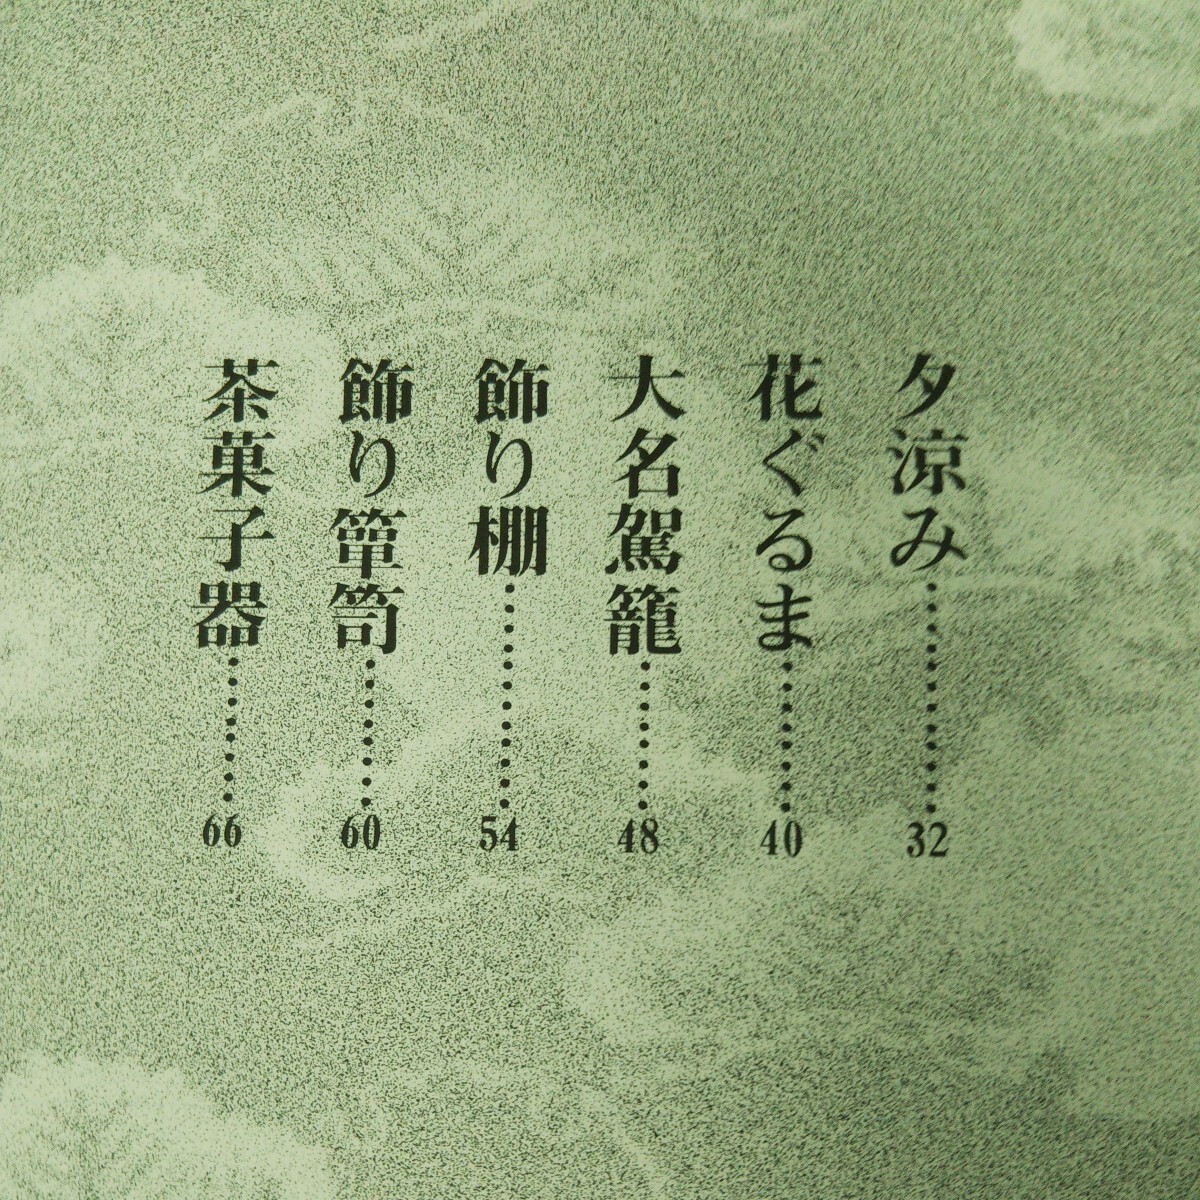 夕涼み…………32
花ぐるま………40
大名駕籠………48
飾り棚…………54
飾り箪笥………60
茶菓子器………66